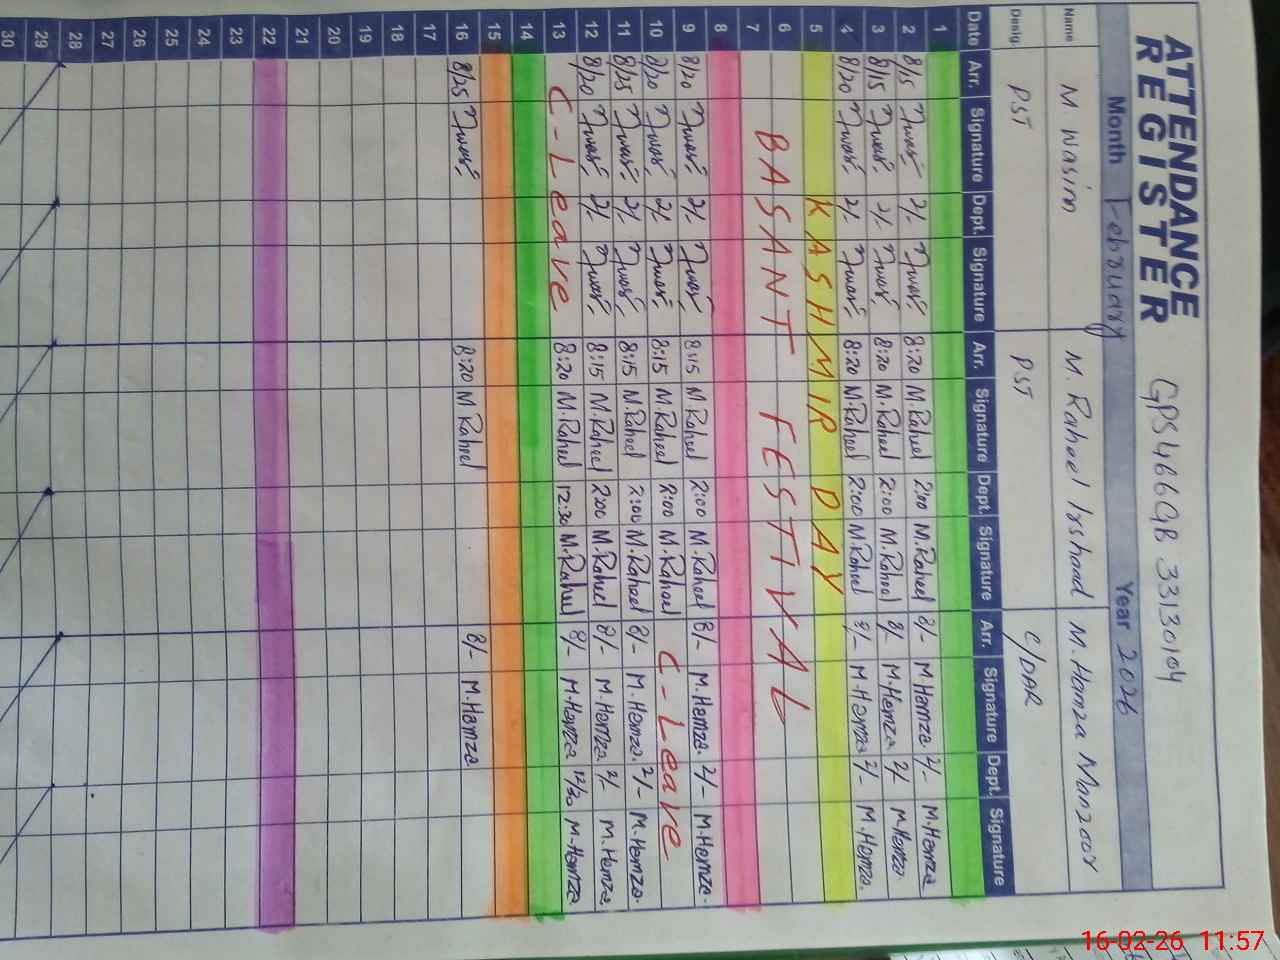 ATTENDANCE
REGISTER
GPS 466GB 33130104
Month February Year 2026
Name M Wasim M. Raheel Irshaad M. Hamza Manzoor
Desig. PST PST C/DAR
Date Arr. Signature Dept. Signature Arr. Signature Dept. Signature Arr. Signature Dept. Signature
1
2 8/15 2/ 8:20 M.Raheel 2:00 M.Raheel 8/- M.Hamza 2/- M.Hamza
3 8/15 2/ 8:20 M.Raheel 2:00 M.Raheel 8/- M.Hamza 2/ M.Hamza
4 8/20 2/ 8:20 M.Raheel 2:00 M.Raheel 8/- M.Hamza 2/- M.Hamza
5 KASHMIR DAY
6 BASANT FESTIVAL
7
8
9 8/20 2/ 8:15 M.Raheel 2:00 M.Raheel 8/- M.Hamza 2/- M.Hamza
10 8/20 2/ 8:15 M.Raheel 2:00 M.Raheel C-Leave
11 8/25 2/ 8:15 M.Raheel 2:00 M.Raheel 8/- M.Hamza 2/- M.Hamza
12 8/20 2/ 8:15 M.Raheel 2:00 M.Raheel 8/- M.Hamza 2/- M.Hamza
13 C-Leave 8:20 M.Raheel 12:30 M.Raheel 8/- M.Hamza 12/30 M.Hamza
14
15
16 8/25 8:20 M Raheel 8/- M.Hamza
17
18
19
20
21
22
23
24
25
26
27
28
29
30
16-02-26 11:57